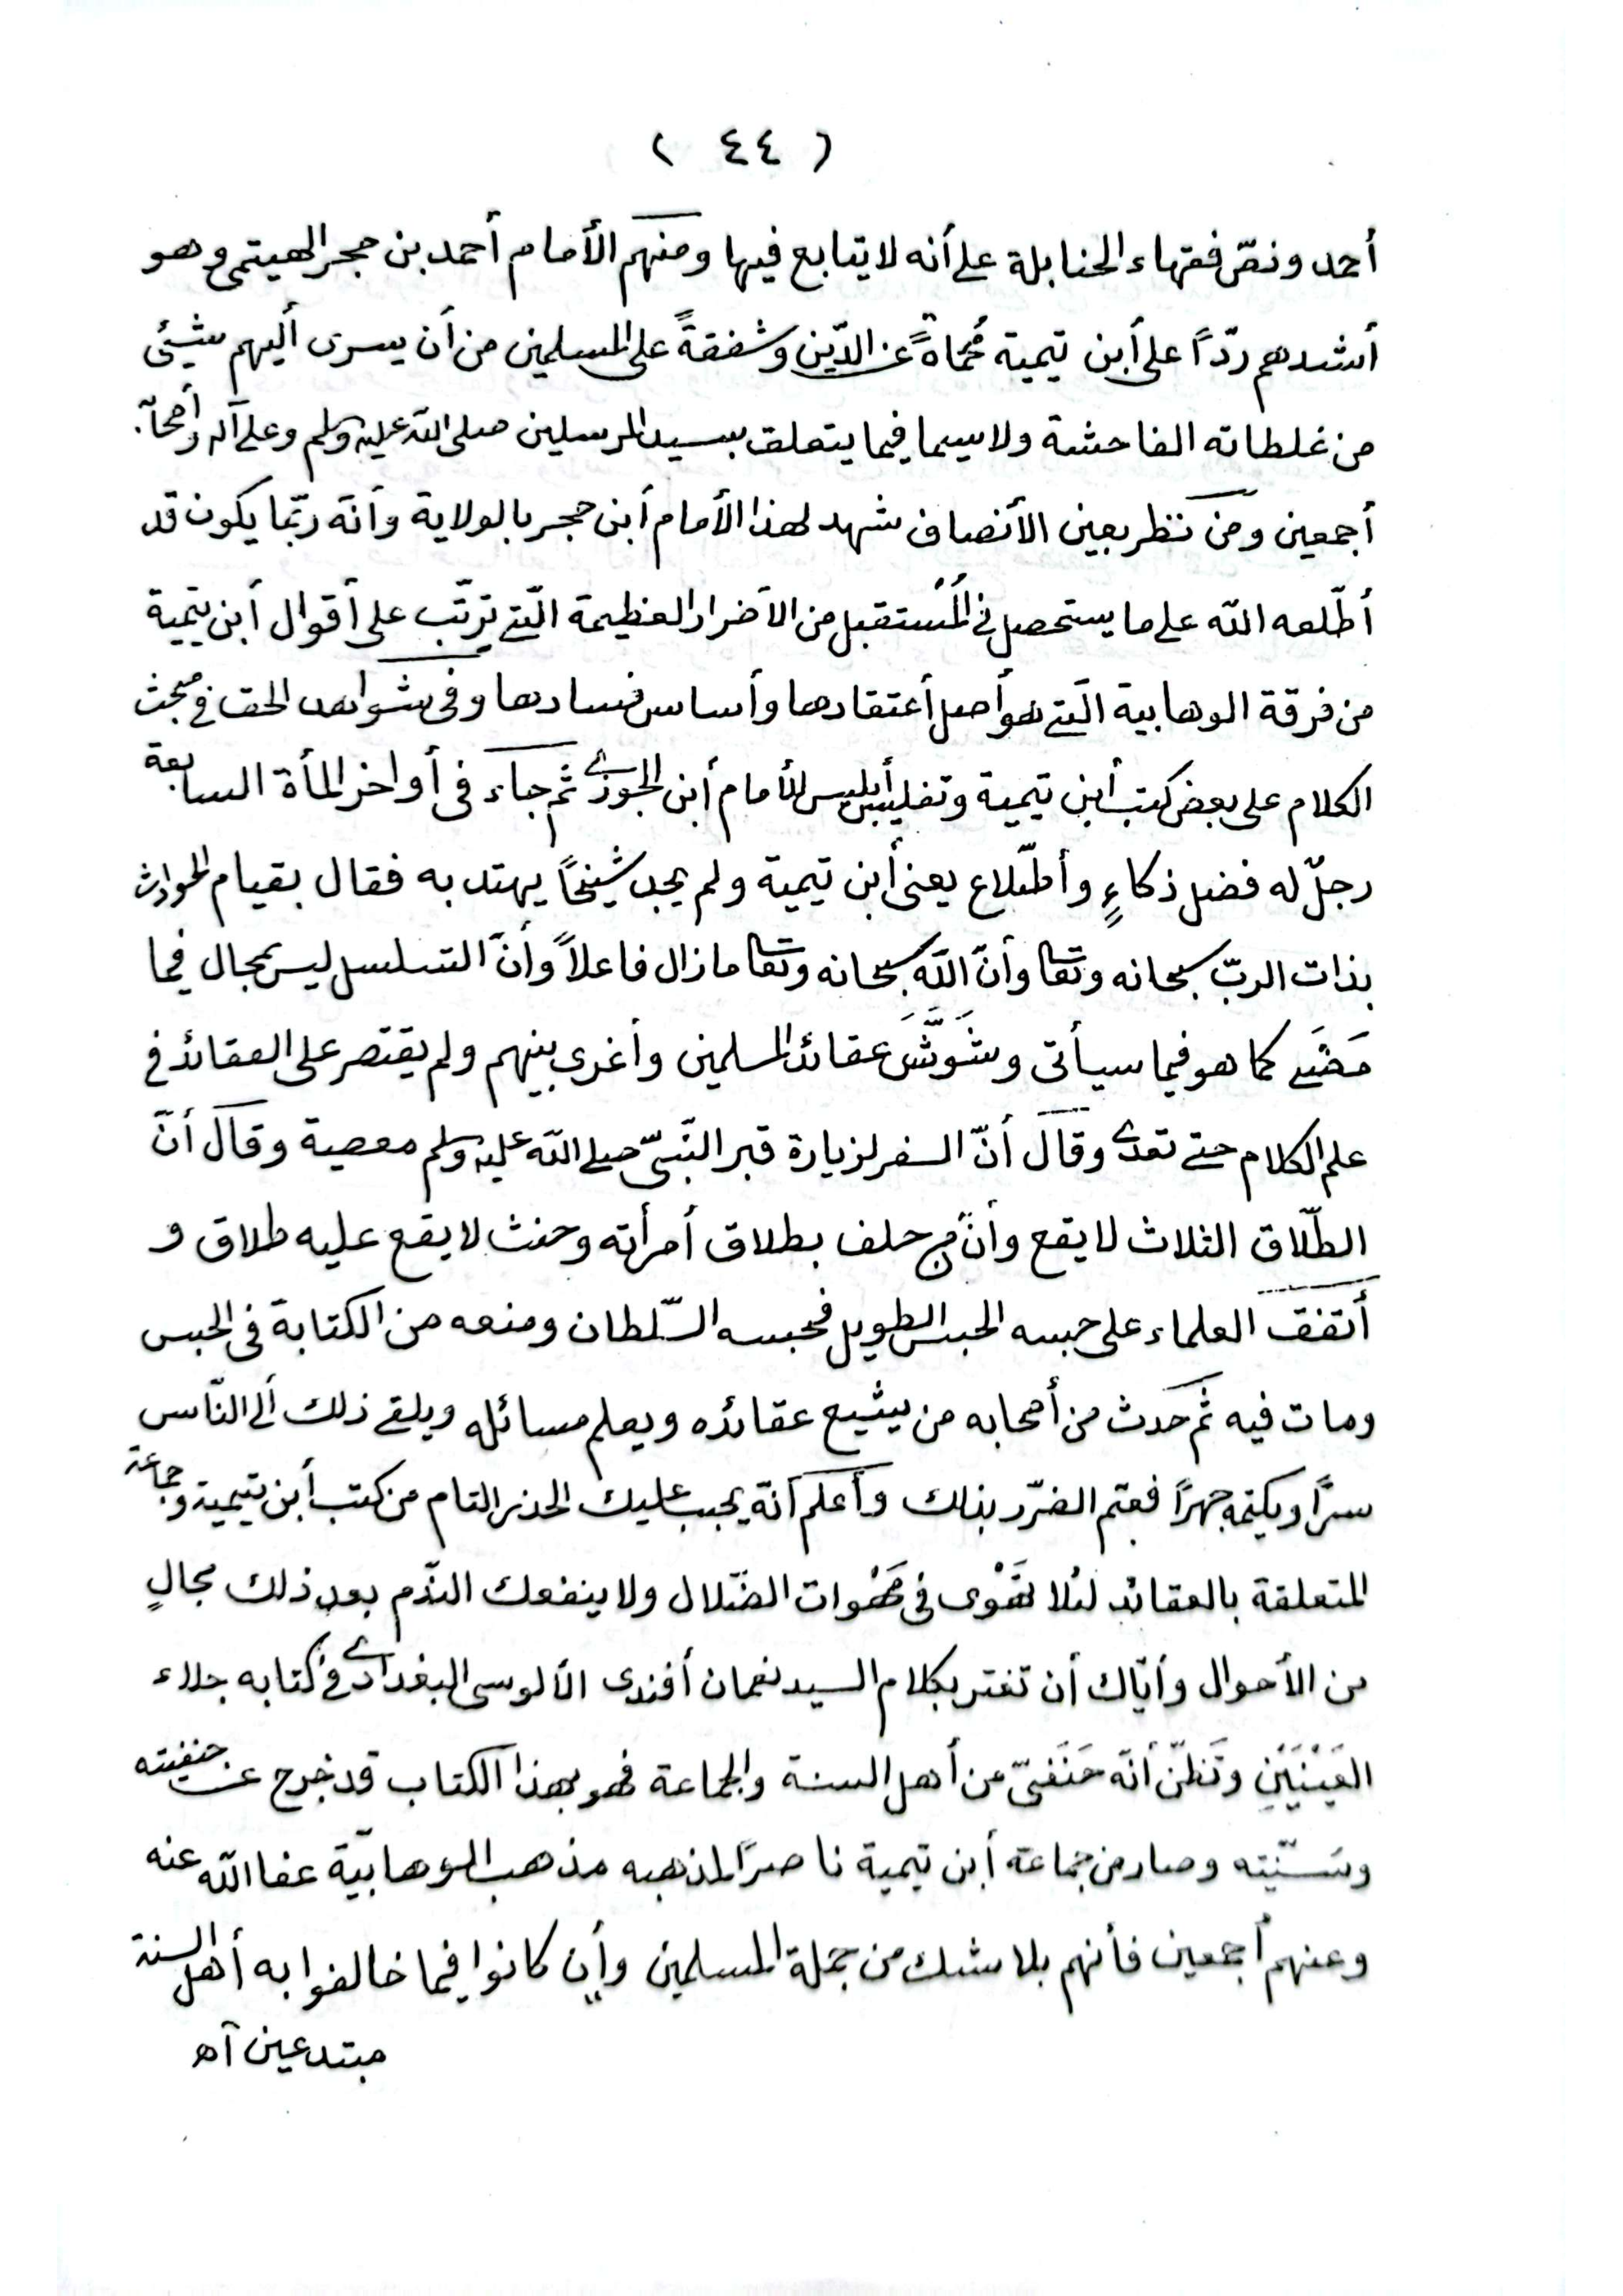 ( ٤٤ )
أحمد ونصّ فقهاء الحنابلة على أنه لا يتابع فيها ومنهم الأمام أحمد بن حجر الهيتمى وهو
أشدهم ردّاً على أبن تيمية محُماةً عن الدّين وشفقةً على المسلمين من أن يسرى أليهم شيئى
من غلطاته الفاحشة ولاسيما فيما يتعلق بسيد المرسلين صلى الله عليه وسلم وعلى آله وأصحابه
أجمعين ومن نظر بعين الأنصاف شهد لهذا الأمام أبن حجر بالولاية وأنّه ربّما يكون قد
أطّلعه الله على ما يستحصل فى المُستقبل من الأضرار العظيمة الّتى يترتّب على أقوال أبن تيمية
من فرقة الوهابية الّتى هو أصل أعتقادها وأساس فسادها وفى شواهد الحق فى مبحث
الكلام على بعض كتب أبن تيمية وتفليس أبليس للأمام أبن الجوزى ثم جاء فى أواخر المأة السابعة
رجلٌ له فضل ذكاءٍ وأطّلاع يعنى أبن تيمية ولم يجد شيخاً يهتد به فقال بقيام الحوادث
بذات الربّ سبحانه وتعا وأنّ الله سبحانه وتعا مازال فاعلاً وأنّ التسلسل ليس بمحال فيما
مَضَى كما هو فيما سيأتى وشَوَّشَ عقائد المسلمين وأغرى بينهم ولم يقتصر على العقائد فى
علم الكلام حتى تعدى وقال أنّ السفر لزيارة قبر النّبىّ صلى الله عليه وسلم معصية وقال أنّ
الطّلاق الثلاث لا يقع وأنّ من حلف بطلاق أمرأته وحنث لا يقع عليه طلاق و
أتفق العلماء على حبسه الحبس الطويل فحبسه السّلطان ومنعه من الكتابة فى الحبس
ومات فيه ثم حدث من أصحابه من يشيع عقائده ويعلم مسائله ويلقى ذلك ألى النّاس
سرًّا ويكتمه جهرًا فعتم الضرّر بذلك وأعلم أنّه يجب عليك الحذر التام من كتب أبن تيمية وجماعته
المتعلقة بالعقائد لئلا تَهْوى فى مَهْوات الضّلال ولا ينفعك النّدم بعد ذلك بحالٍ
من الأحوال وأيّاك أن تغتر بكلام السيد نعمان أفندى الألوسى البغدادى فى كتابه جلاء
العَيْنَيْنِ وتَظنّ أنّه حَنَفىّ من أهل السنة والجماعة فهو بهذا الكتاب قد خرج عن حنفيته
وسُنّيته وصار من جماعة أبن تيمية ناصرًا لمذهبه مذهب الوهابيّة عفا الله عنه
وعنهم أجمعين فأنهم بلا شك من جملة المسلمين وأن كانوا فيما خالفوا به أهل السنة
مبتدعين آه